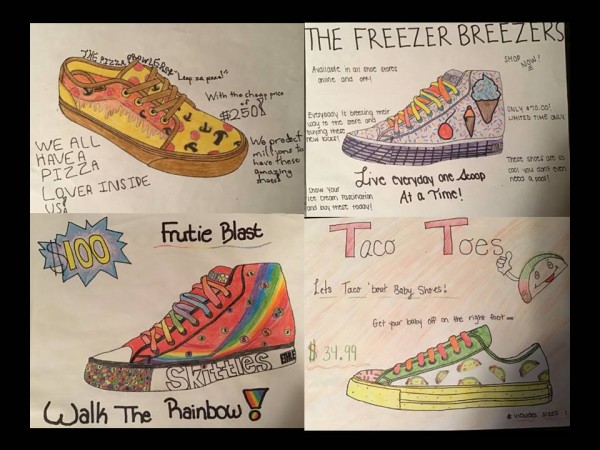 THE PIZZA PROWLERS!
"Leap za piana!"
With the cheap price
of
$250!
WE ALL
HAVE A
PIZZA
LOVER INSIDE
US!
We predict
millyons to
have these
amazing
shoes!
THE FREEZER BREEZERS
Available in all shoe stores
online and off!
SHOP
NOW!
Everybody is breezing their
way to the store and
buying these
new kicks!
ONLY $70.00!
LIMITED TIME ONLY
Show your
ice cream fascination
and buy these today!
Live everyday one scoop
At a Time!
These shoes are so
cool you don't even
need a pool!
$100
Frutie Blast
Skittles
Walk The Rainbow!
Taco Toes
Lets Taco 'bout Baby Shoes!
Get your baby off on the right foot...
$34.99
* includes sizes